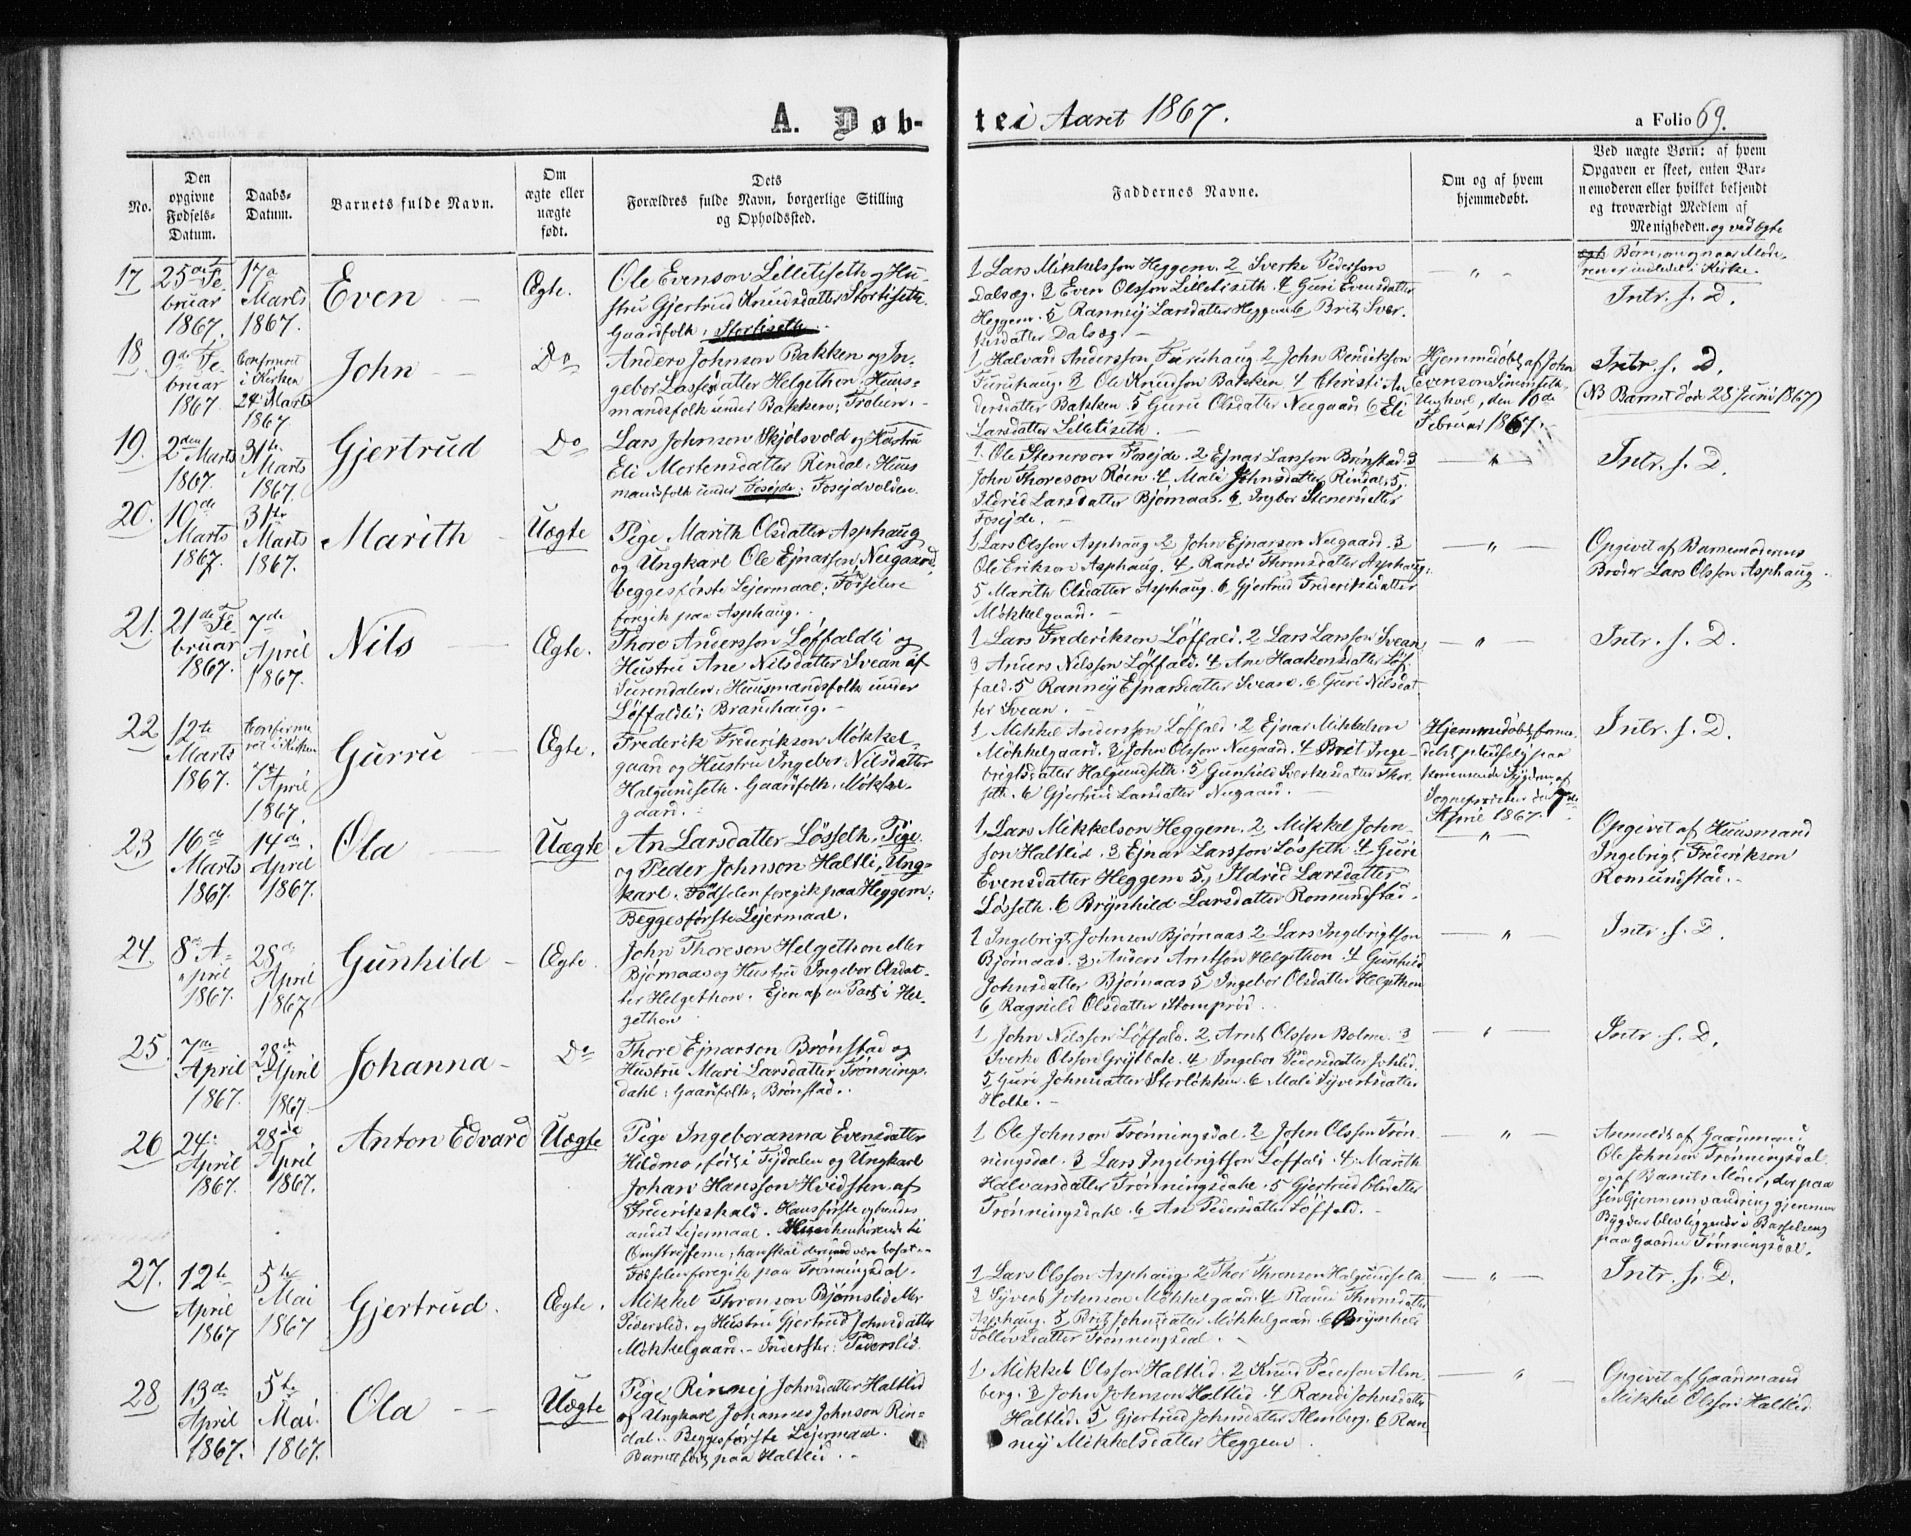 A. Døb-
te i Aaret 1867.
a Folio 69.
No.
Den
opgivne
Fødsels-
Datum.
Daabs-
Datum.
Barnets fulde Navn.
Om
ægte eller
uægte
født.
Dets
Forældres fulde Navn, borgerlige Stilling
og Opholdssted.
Faddernes Navne.
Om og af hvem
hjemmedøbt.
Ved uægte Børn: af hvem
Opgaven er skeet, enten Bar-
nemoderen eller hvilket bekjendt
og troværdigt Medlem af
Menigheden. og ved ægte
Børn, om og naar Mode-
ren er indledet i Kirke.
17
25de Fe-
bruar
1867.
17de
Marts
1867.
Even
Ægte.
Ole Evenson Lilletiseth og Hu-
stru Gjertrud Knudsdatter Stortiseth.
Gaardfolk, Stortiseth
1 Lars Mikkelsson Heggem. 2 Sverke Pederson
Dalsæg. 3 Even Olsson Lilletiseth. 4 Guri Evensdatter
Heggem. 5 Ranney Larsdatter Heggem 6 Brit Sver-
kesdatter Dalsæg.
— " —
Intr. s. D.
18.
9de Fe-
bruar
1867
Confirmeret
i Kirken
24. Marts
1867
John
Do
Anders Johnson Bakken og In-
gebor Lassesdatter Helgethon. Huus-
mandsfolk under Bakken;
1 Halvard Andersson Furuhaug. 2 John Hendrikson
Furuhaug. 3 Ole Knudson Bakken. 4 Christi An-
dersdatter Bakken. 5 Guru Olsdatter Neegaard 6 Eli
Larsdatter Lilletiseth. —
Hjemmedøbt af John
Evenson
den 10de
Februar 1867.
Intr. s. D.
(NB Barnet døde 28 Juni 1867)
19.
2den
Marts
1867.
31te
Marts
1867.
Gjertrud
Do
Lars Johnson Skjølsvold og Hustru
Eli Mortensdatter Rindal. Huus-
mandsfolk under Fosejde; Fosejdvolden.
1. Ole Stenerson Fosejde. 2 Ejnar Larsson Brønstad. 3
John Thoreson Røen. 4 Mali Johnsdatter Rindal. 5
Ildrid Larsdatter Bjørnaas. 6 Ingbor Stenersdatter
Fosejde. —
— " —
Intr. s. D.
20.
10de
Marts
1867.
31te
Marts
1867.
Marith
Uægte
Pige Marith Olsdatter Asphaug
og Ungkarl Ole Ejnarsen Neegaard.
begges første Lejermaal; Fødselen
foregik paa Asphaug.
1 Lars Olsson Asphaug 2 John Ejnarson Neegaard. 3
Ole Erikson Asphaug. 4 Randi Thronsdatter Asphaug;
5 Marith Olsdatter Asphaug. 6 Gjertrud Frederiksdatter
Møkkelgaard. —
— " —
Opgivet af Barnemoderens
Broder Lars Olsson Asphaug.
21.
21de Fe-
bruar
1867.
7de
April
1867.
Nils
Ægte.
Thore Andersson Løffaldli og
Hustru Ane Nilsdatter Svean af
Surendalen; Huusmandsfolk under
Løffaldli; Brandhaug. —
1 Lars Frederikson Løffald. 2 Lars Larsson Svean
3 Anders Nilsson Løffald. 4 Ane Haakonsdatter Løf-
fald. 5 Ranney Ejnarsdatter Svean. 6 Guri Nilsdat-
ter Svean. —
— " —
Intr. s. D.
22
12te
Marts
1867.
Confirme-
ret i Kirken
7de April
1867.
Gurru
Ægte.
Frederik Frederikson Møkkel-
gaard og Hustru Ingebor Nilsdatter
Halgundseth. Gaardfolk. Møkkel-
gaard.
1 Mikkel Andersson Løffald. 2 Ejnar Mikkelson
Møkkelgaard. 3 John Olsson Neegaard. 4 Brit Inge-
brigtsdatter Halgundseth. 5 Gunhild Sverkesdatter Thor-
seth. 6 Gjertrud Larsdatter Neegaard. —
Hjemmedøbt forme-
delst pludselig paa-
kommende Sygdom af
Sognepresten den 7de
April 1867.
Intr. s. D.
23
16de
Marts
1867.
14de
April
1867.
Ola
Uægte
An Larsdatter Løsseth, Pige
og Peder Johnson Haltli, Ung-
karl. Fødselen foregik paa Heggem;
Begges første Lejermaal.
1. Lars Mikkelson Heggem. 2 Mikkel John-
son Haltlid. 3 Ejnar Larsson Løsseth. 4 Guri
Evensdatter Heggem 5. Ildrid Larsdatter
Løsseth. 6 Brynhild Larsdatter Romundstad.
— " —
Opgivet af Huusmand
Ingebrigt Frederikson
Romundstad. —
24.
8de A-
pril
1867.
28de
April
1867
Gunhild
Ægte.
John Thoreson Helgethon eller
Bjørnaas og Hustru Ingebor Olsdat-
ter Helgethon. Ejer af en Part i Hel-
gethon
1 Ingebrigt Johnson Bjørnaas 2 Lars Ingebrigtson
Bjørnaas. 3 Anders Arntson Helgethon 4 Gunhild
Johnsdatter Bjørnaas 5 Ingebor Olsdatter Helgethon
6 Ragnild Olsdatter Stomprød.
— " —
Intr. s. D.
25.
7de
April
1867.
28de
April
1867.
Johanna
Do
Thore Ejnarson Brønstad og
Hustru Mari Larsdatter Trønnings-
dahl; Gaardfolk; Brønstad.
1 John Nilsson Løffald. 2 Arnt Olsson Bolme. 3
Sverke Olsson Grytbak. 4 Ingebor Pedersdatter
5 Guri Johnsdatter Storløkken. 6 Mali Syvertsdatter
Holte. —
— " —
Intr. s. D.
26
24.
April
1867.
28de
April
1867.
Anton Edvard
Uægte
Pige Ingeboranna Evensdatter
Hildmo, født i Tydalen og Ungkarl
Johan Hansson Hvidsten af
Frederikshald. Hans første og hendes
andet Lejermaal.
Omstreiferne; han skal
Fødselen foregik paa Trønningsdal.
1 Ole Johnson Trønningsdal. 2 John Olsson Trøn-
ningsdal. 3 Lars Ingebrigtson Løffald 4. Marith
Halvarsdatter Trønningsdahl. 5 Gjertrud Olsdatter
Trønningsdahl. 6 An Pedersdatter Løffald. —
— " —
Anmeldt af Gaardmand
Ole Johnson Trønningsdal.
og af Barnets Moder, der paa
sin Gjennemvandring gjennem
Bygden blev liggende i Barselseng
paa Gaarden Trønningsdal.
27.
12te
April
1867
5te
Mai
1867
Gjertrud.
Ægte.
Mikkel Thronson Bjørnslid eller
Pederslid. og Hustru Gjertrud Johnsdatter
Møkkelgaard. — Inderster; Pederslid.
1 Lars Olsson Asphaug 2 Thor Thronson Halgundseth.
3 Syvert Johnson Møkkelgaard. 4 Randi Thronsdatter
Asphaug. 5 Brit Johnsdatter Møkkelgaard. 6 Brynhild
Tollevsdatter Trønningsdal. —
— " —
Intr. s. D.
28
13de
April
1867.
5te
Mai.
1867.
Ola
Uægte
Pige Rinnej Johnsdatter Haltlid
og Ungkarl Johannes Johnson Rin-
dal. Begges første Lejermaal.
Barnet født paa Haltlid.
1. Mikkel Olsson Haltlid. 2 Knud Pederson Alm-
berg. 3 John Johnson Haltlid. 4 Randi Johnsdatter
Haltlid. 5 Gjertrud Johnsdatter Almberg. 6 Ran-
nej Mikkelsdatter Heggem.
— " —
Opgivet af Gaardmand
Mikkel Olsson Haltlid.